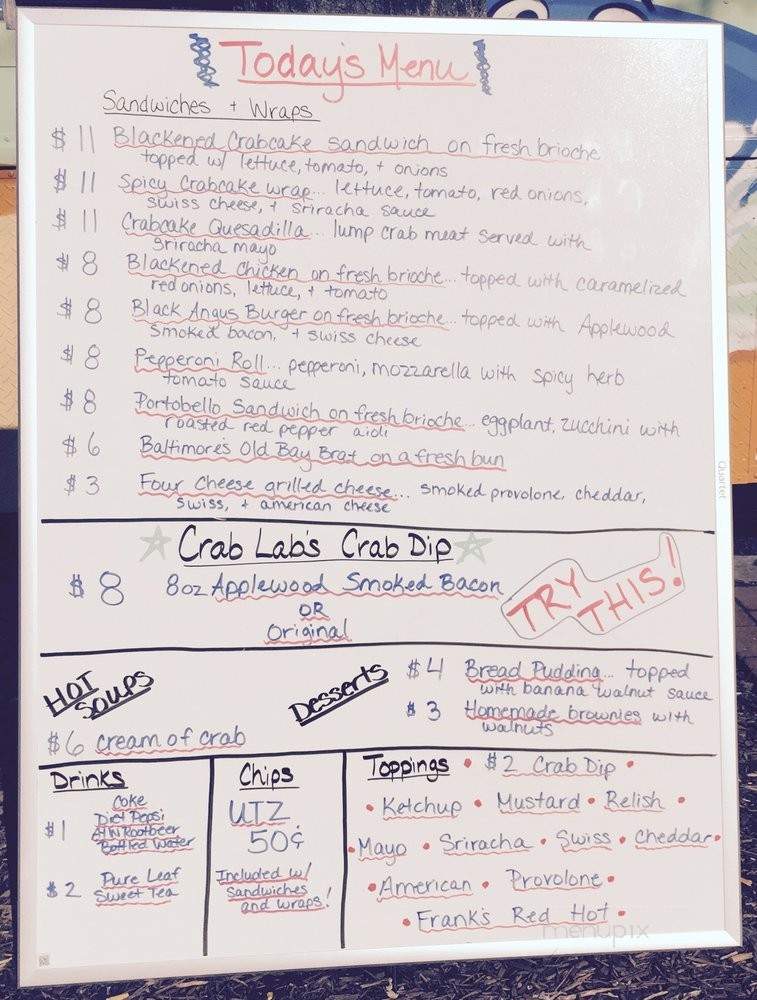 Today's Menu
Sandwiches + Wraps
$11 Blackened Crabcake sandwich on fresh brioche
topped w/ lettuce, tomato, + onions
$11 Spicy Crabcake wrap... lettuce, tomato, red onions,
swiss cheese, + sriracha sauce
$11 Crabcake Quesadilla... lump crab meat served with
sriracha mayo
$8 Blackened Chicken on fresh brioche... topped with caramelized
red onions, lettuce, + tomato
$8 Black Angus Burger on fresh brioche... topped with Applewood
smoked bacon, + swiss cheese
$8 Pepperoni Roll... pepperoni, mozzarella with spicy herb
tomato sauce
$8 Portobello Sandwich on fresh brioche... eggplant, zucchini with
roasted red pepper aioli
$6 Baltimore's Old Bay Brat on a fresh bun
$3 Four Cheese grilled cheese... smoked provolone, cheddar,
swiss, + american cheese
Quartet
Crab Lab's Crab Dip
$8 8oz Applewood Smoked Bacon
OR
Original
TRY THIS!
Hot Soups
$6 cream of crab
Desserts
$4 Bread Pudding... topped
with banana walnut sauce
$3 Homemade brownies with
walnuts
Drinks
Coke
Diet Pepsi
$1 A+W Rootbeer
Bottled Water
$2 Pure Leaf
Sweet Tea
Chips
UTZ
50¢
Included w/
Sandwiches
and wraps!
Toppings • $2 Crab Dip •
• Ketchup • Mustard • Relish •
• Mayo • Sriracha • Swiss • Cheddar •
• American • Provolone •
• Frank's Red Hot •
menupix